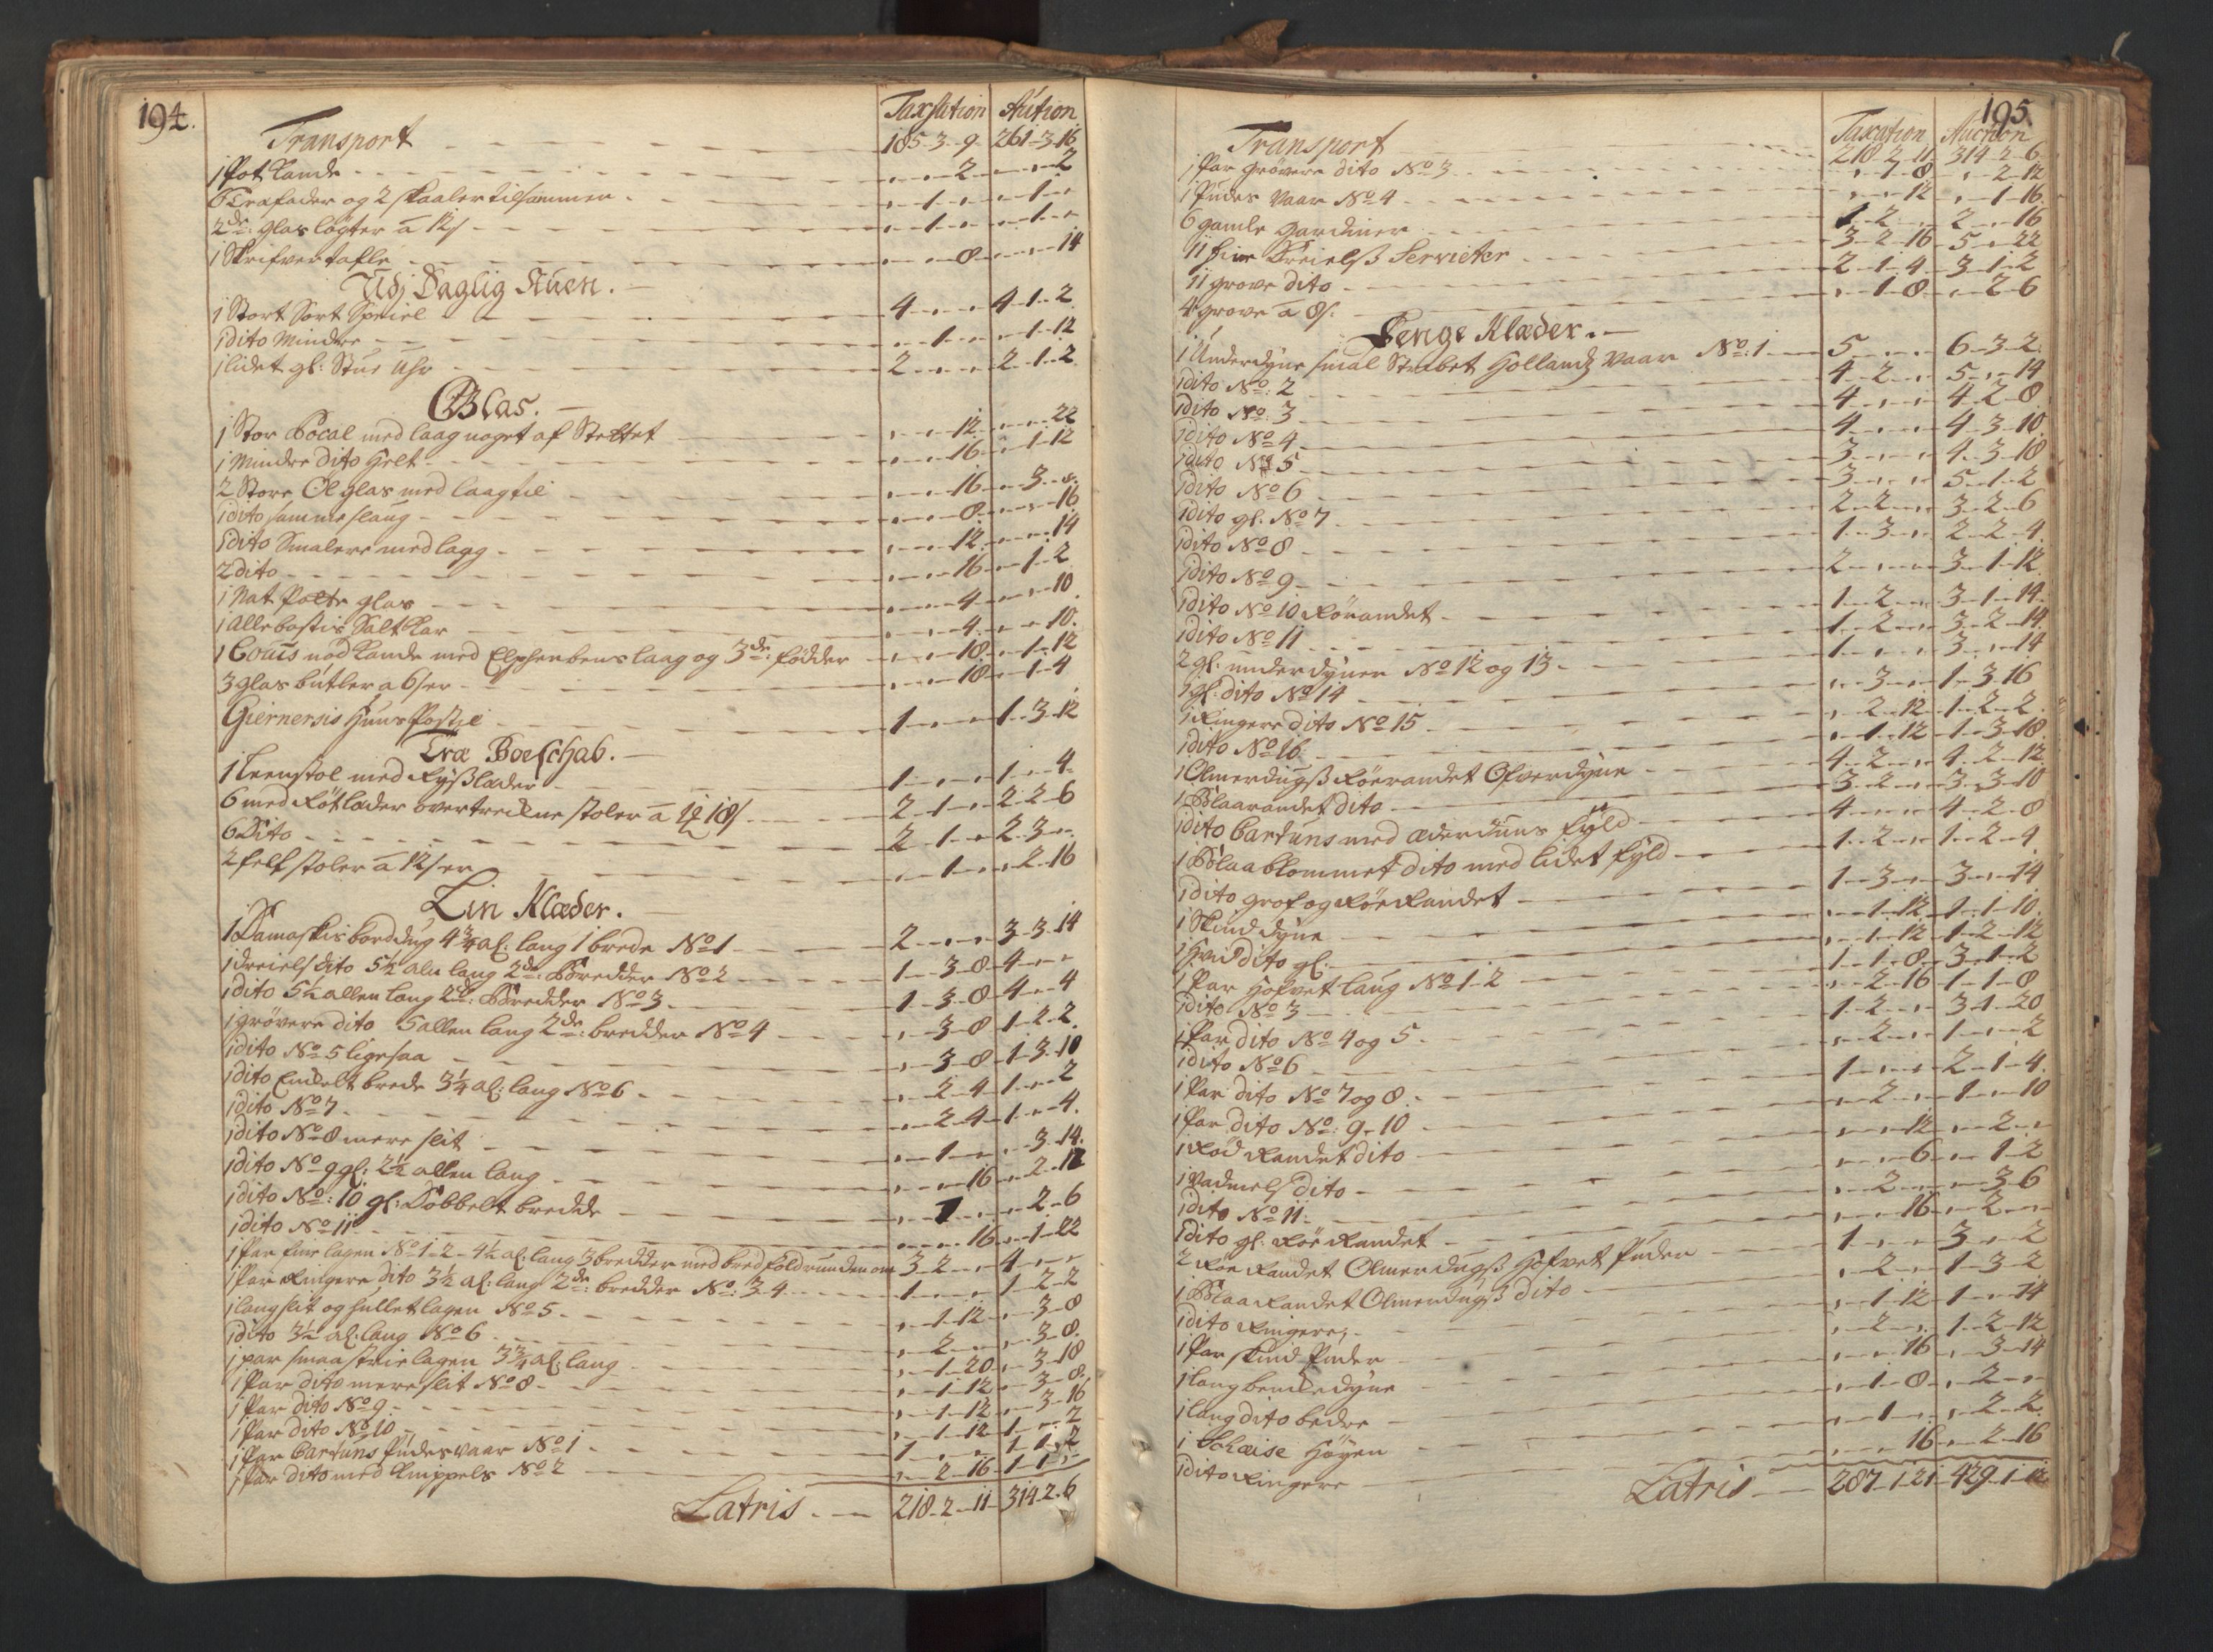 194.
Taxsation Aution
Transport 185-3-9 261-3-16
1 Pot Kande 2 2
6 Træfader og 2 skaaler tilsammen 1 1
2de: glas løgter a 12s 1 1
1 Skrifvertafle 8 14
Udj Daglig Stuen.
1 Stort Sort Speiel 4 4-1-2
1 dito Mindre 1 1-12
1 lidet gl: Stue Uhr 2 2-1-2
Glas.
1 Stor Pocal med laag noget af Stettet 12 22
1 Mindre dito Helt 16 1-12
2 Store Øl glas med laag til 16 3-8
1 dito samme slaug 8 16
1 dito Smalere med lagg 12 14
2 dito 16 1-2
1 Nat Potte glas 4 10
1 Allebastis Salt Kar 4 10
1 Couis nød Kande med Elphenbens laag og 3de: fødder 18 1-12
3 glas butler a 6s er 18 1-4
Giernersis Huus Postil 1 1-3-12
Træ Boeschab.
1 Leenstol med Rysslæder 1 1-4
6 med Røtlæder overtrekne stoler a 18s 2-1 2-2-6
6 Dito 2-1 2-3
2 felt stoler a 12s er 1 2-16
Lin Klæder.
1 Damaskis borddug 4 3/4 al: lang 1 brede No 1 2 3-3-14
1 dreiels dito 5 1/2 aln lang 2de: Bredder No 2 1-3-8 4
1 dito 5 1/2 allen lang 2de: Bredder No 3 1-3-8 4-4
1 grøvere dito 5 allen lang 2de: bredder No 4 3-8 1-2-2
1 dito No 5 ligesaa 3-8 1-3-10
1 dito Enckelt brede 3 1/4 al: lang No 6 2-4 1-2
1 dito No 7 2-4 1-4
1 dito No 8 mere slit 1 3-14
1 dito No 9 gl: 2 1/2 allen lang 16 2-12
1 dito No: 10 gl: Dobbelt bredde 1 2-6
1 dito No 11 16 1-22
1 Par fine lagen No 1-2-4 1/2 al: lang 3 bredder med bred fold runden om 3-2 4
1 Par Ringere dito 3 1/2 al: lang 2de: bredder No: 3-4 1 1-2-2
1 lang slit og hullet lagen No 5 1-12 3-8
1 dito 3 1/2 al: lang No 6 2 3-8
1 par smaa strie lagen 3 3/4 al: lang 1-20 3-18
1 Par dito mere slit No 8 1-12 3-8
1 Par dito No 9 1-12 3-16
1 Par dito No 10 1-12 1-2
1 Par Cartuns Pudesvaar No 1 1 1-1-2
1 Par dito med Knippels No 2 2-16 1-1
Latris 218-2-11 314-2-6
195.
Taxation Auction
Transport 218-2-11 314-2-6
1 Par grøvere dito No 3 1-8 2-12
1 Pudes Vaar No 4 12 1-16
6 gamle gardiner 1-2 2-16
11 fine Dreielss Servieter 3-2-16 5-22
11 grove dito 2-1-4 3-1-2
4 grove a 8s. 1-8 2-6
Senge Klæder.
1 Underdyne smal Strebet Hollandz Vaar No: 1 5 6-3-2
1 dito No: 2 4-2 5-14
1 dito No: 3 4 4-2-8
1 dito No 4 4 4-3-10
1 dito No 5 3 4-3-18
1 dito No 6 3 5-1-2
1 dito gl: No 7 2-2 3-2-6
1 dito No 8 1-3 2-2-4
1 dito No 9 2 3-1-12
1 dito No 10 Rørandet 1-2 3-1-14
1 dito No 11 1-2 3-2-14
2 gl: underdyner No 12 og 13 1 3-14
1 gl: dito No 14 3 1-3-16
1 Ringere dito No 15 2-12 1-2-2
1 dito No 16 1-12 1-3-18
1 Olmerdugss Rørrandet Ofverdyne 4-2 4-2-12
1 Blaarandet dito 3-2 3-3-10
1 dito Cartuns med ædderduns fyld 4 4-2-8
1 Blaablommet dito med lidet fyld 1-2 1-2-4
1 dito grof og Rør Randet 1-3 3-14
1 Skind dyne 1-12 1-1-10
1 Hvid dito gl: 1-12 1-2-12
1 Par Hofvet laug No 1-2 1-1-8 3-1-2
1 dito No 3 2-16 1-1-8
1 Par dito No 4 og 5 1-2 3-1-20
1 dito No 6 2 1-2
1 Par dito No 7 og 8 1 2-1-4
1 Par dito No: 9-10 2 1-10
1 Rød Randet dito 12 2
1 Vadmels dito 6 1-2
1 dito No 11 2 3-6
1 dito gl: Rør Randet 16 2
2 Rør Randet Olmerdugss Hofvet Puder 1 3-2
1 Blaa Randet Olmerdugss dito 2 1-3-2
1 dito Ringere 1-12 1-14
1 Par skind Puder 2 1-2-12
1 lang benkedyne 16 3-14
1 lang dito bedre 1-8 2
1 Schæise Høyen 1 2-2
1 dito Ringere 16 2-16
Latris 287-1-21 429-1-12